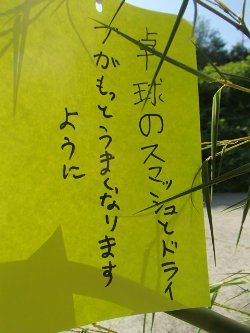 卓球のスマッシュとドライ
ブがもっとうまくなります
ように